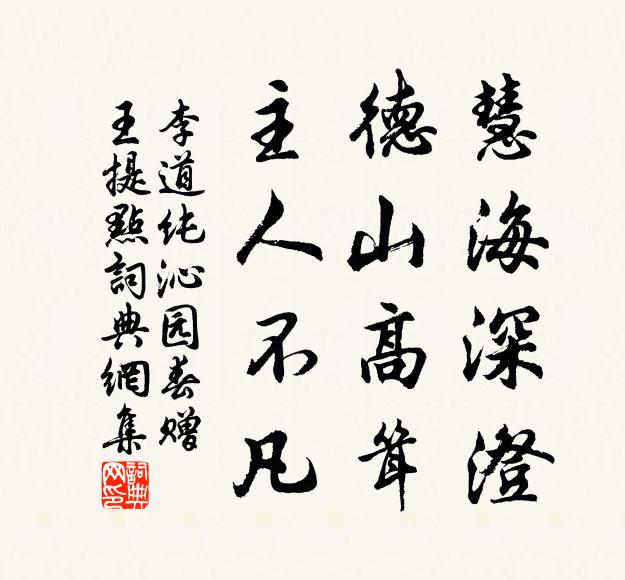 慧海深澄
德山高耸
主人不凡
李道纯沁园春赠
王提點詞典網集
詞典网印